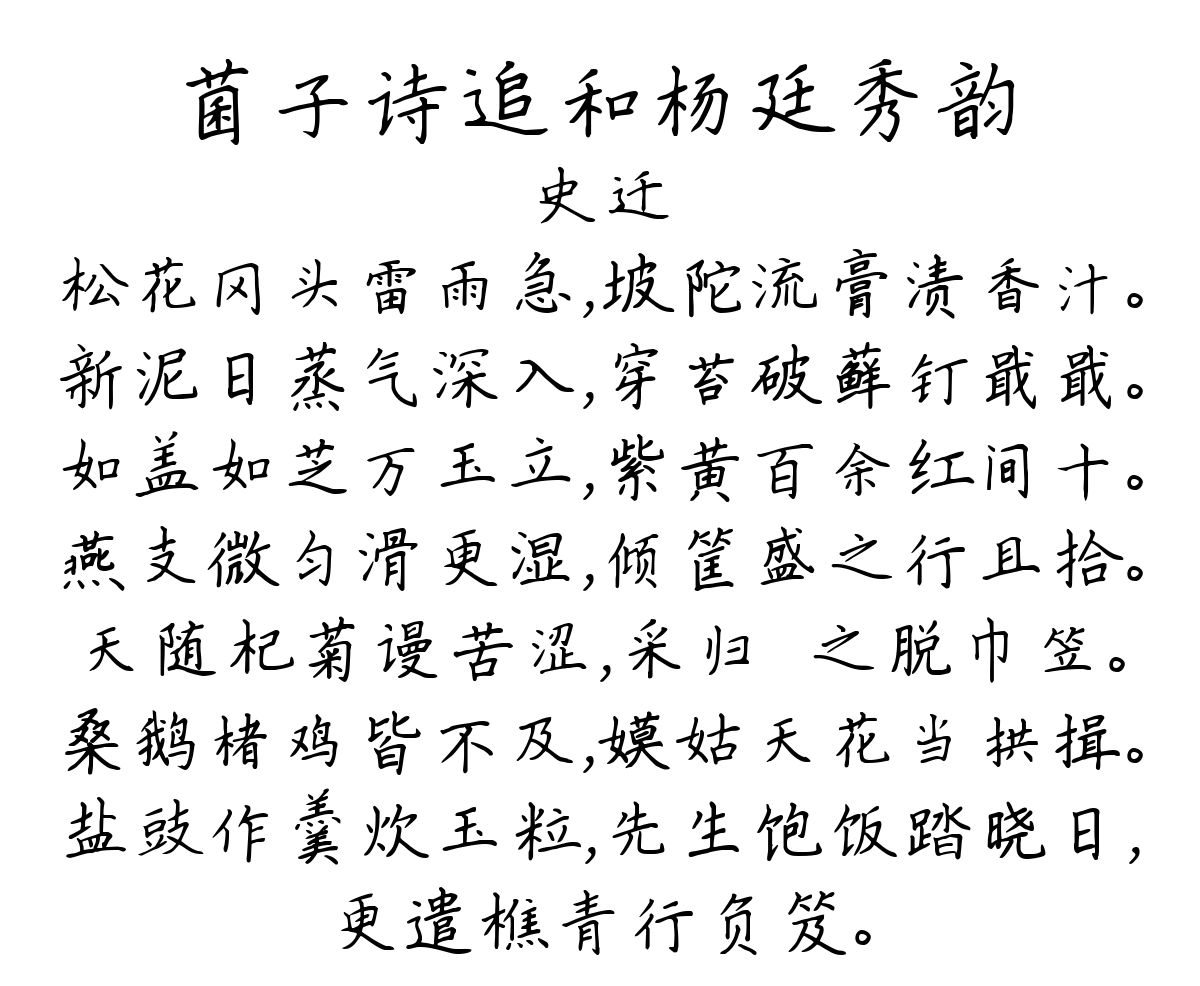 菌子诗追和杨廷秀韵
史迁
松花冈头雷雨急,坡陀流膏渍香汁。
新泥日蒸气深入,穿苔破藓钉戢戢。
如盖如芝万玉立,紫黄百余红间十。
燕支微匀滑更湿,倾筐盛之行且拾。
天随杞菊谩苦涩,采归 之脱巾笠。
桑鹅楮鸡皆不及,嫫姑天花当拱揖。
盐豉作羹炊玉粒,先生饱饭踏晓日,
更遣樵青行负笈。